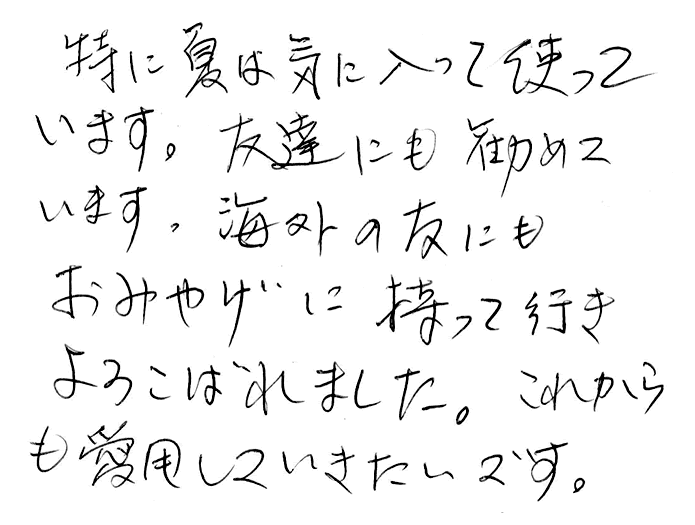 特に夏は気に入って使って
います。友達にも勧めて
います。海外の友にも
おみやげに持って行き
よろこばれました。これから
も愛用していきたいです。